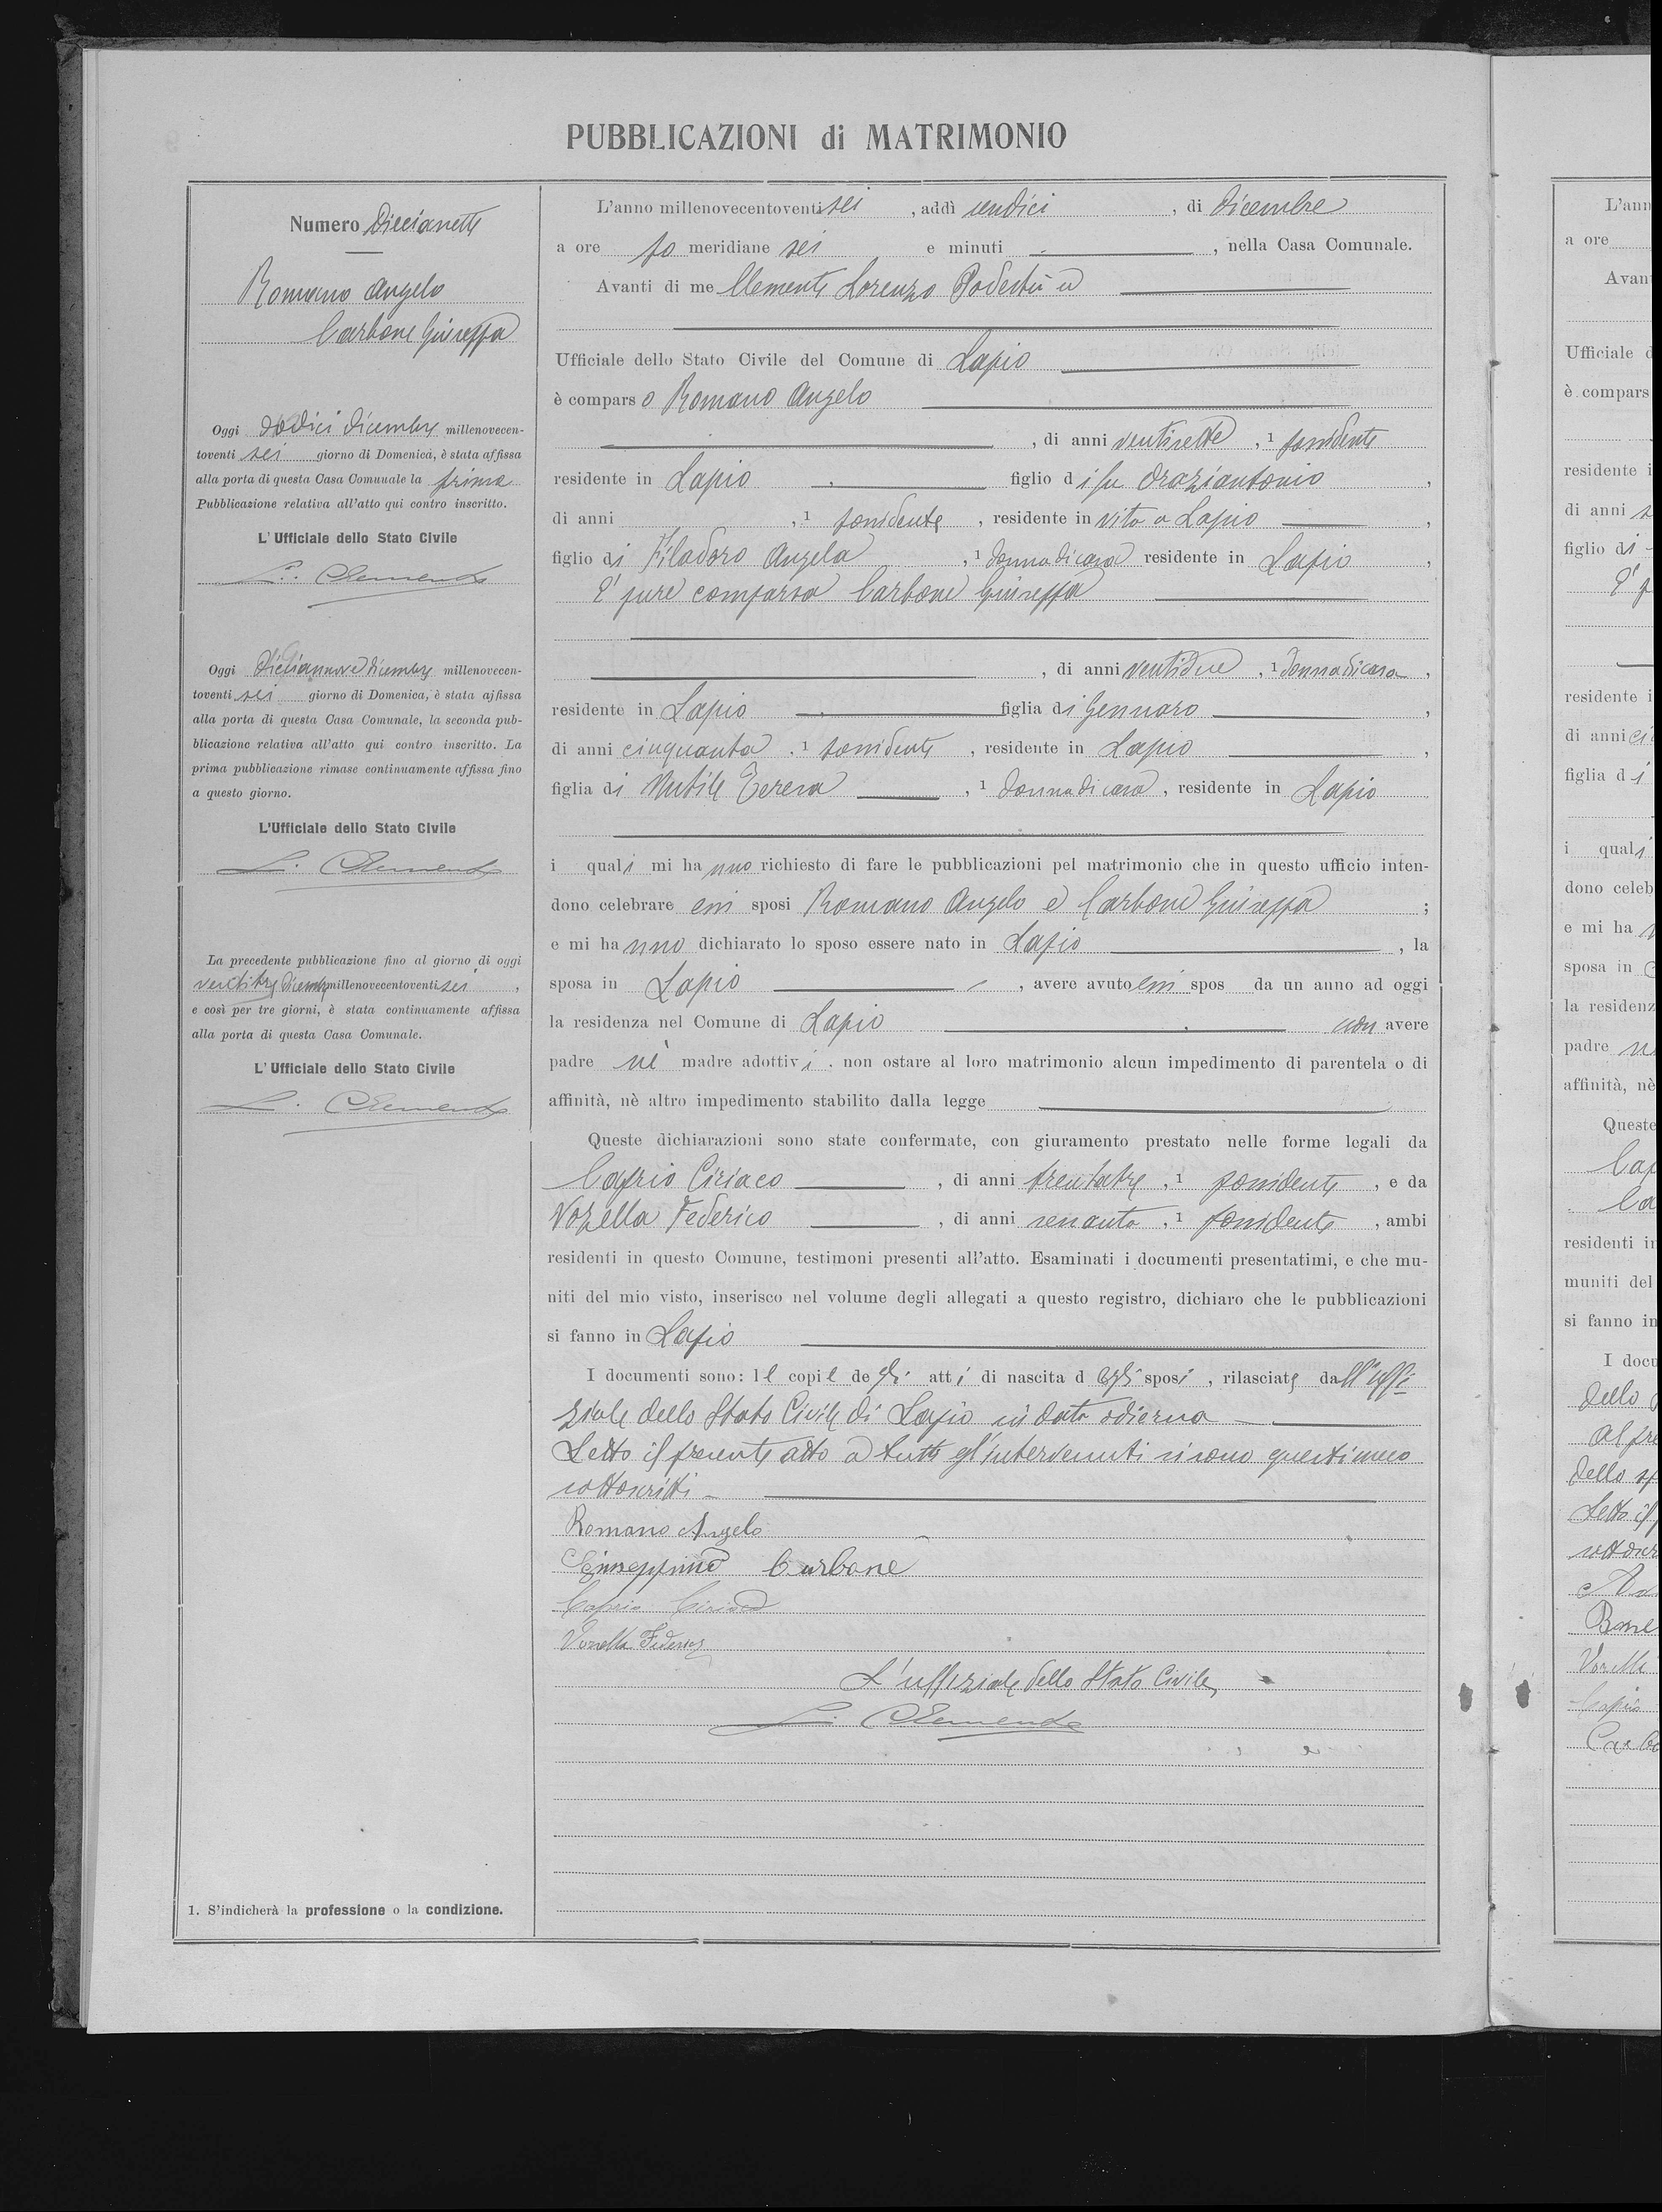 PUBBLICAZIONI di MATRIMONIO
Numero Diecianette
Romano Angelo
Carbone Giuseppa
Oggi dodici dicembre millenovecen-
toventi sei giorno di Domenica, è stata affissa
alla porta di questa Casa Comunale la prima
Pubblicazione relativa all'atto qui contro inscritto.
L'Ufficiale dello Stato Civile
L. Clemente
Oggi diciannove dicembre millenovecen-
toventi sei giorno di Domenica, è stata affissa
alla porta di questa Casa Comunale, la seconda pub-
blicazione relativa all'atto qui contro inscritto. La
prima pubblicazione rimase continuamente affissa fino
a questo giorno.
L'Ufficiale dello Stato Civile
L. Clemente
La precedente pubblicazione fino al giorno di oggi
ventitre dicembre millenovecentoventi sei,
e così per tre giorni, è stata continuamente affissa
alla porta di questa Casa Comunale.
L'Ufficiale dello Stato Civile
L. Clemente
1. S'indicherà la professione o la condizione.
L'anno millenovecentoventi sei, addì undici, di dicembre
a ore po meridiane sei e minuti , nella Casa Comunale.
Avanti di me Clemente Lorenzo Podestà ed
Ufficiale dello Stato Civile del Comune di Lapio
è compars o Romano Angelo
, di anni ventisette, 1 possidente
residente in Lapio figlio d i fu Oraziantonio,
di anni , 1 possidente, residente in vita a Lapio,
figlio di Filadoro Angela, 1 donna di casa residente in Lapio,
E' pure comparsa Carbone Giuseppa
, di anni ventidue, 1 donna di casa,
residente in Lapio figlia di Gennaro,
di anni cinquanta, 1 possidente, residente in Lapio,
figlia di Nutile Teresa, 1 donna di casa, residente in Lapio
i quali mi ha nno richiesto di fare le pubblicazioni pel matrimonio che in questo ufficio inten-
dono celebrare essi sposi Romano Angelo e Carbone Giuseppa;
e mi ha nno dichiarato lo sposo essere nato in Lapio, la
sposa in Lapio, avere avuto essi spos da un anno ad oggi
la residenza nel Comune di Lapio non avere
padre nè madre adottivi, non ostare al loro matrimonio alcun impedimento di parentela o di
affinità, nè altro impedimento stabilito dalla legge
Queste dichiarazioni sono state confermate, con giuramento prestato nelle forme legali da
Caprio Ciriaco, di anni trentatre, 1 possidente, e da
Vozella Federico, di anni sessanta, 1 possidente, ambi
residenti in questo Comune, testimoni presenti all'atto. Esaminati i documenti presentatimi, e che mu-
niti del mio visto, inserisco nel volume degli allegati a questo registro, dichiaro che le pubblicazioni
si fanno in Lapio
I documenti sono: le copie degli atti di nascita degli sposi, rilasciate dall'uffi-
ziale dello Stato Civile di Lapio in data odierna
Letto il presente atto a tutti gl'intervenuti si sono questi meco
sottoscritti
Romano Angelo
Giuseppina Carbone
Caprio Ciriaco
Vozella Federico
L'uffiziale dello Stato Civile
L. Clemente
L'ann
a ore
Avan
Ufficiale d
è compars
residente i
di anni
figlio di
E' p
residente i
di anni ci
figlia d i
i quali
dono celeb
e mi ha
sposa in
la residenz
padre n
affinità, nè
Queste
Cap
Ca
residenti in
muniti del
si fanno in
I docu
dello
al pre
dello sp
Letto il
sottoscr
Vozella
Caprio